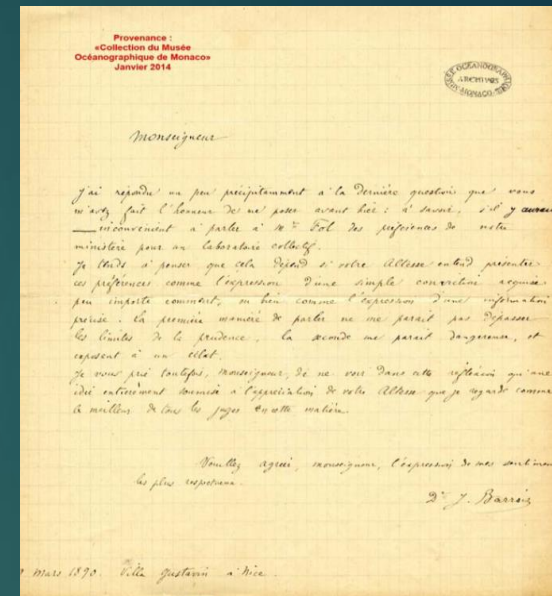 Provenance :
«Collection du Musée
Océanographique de Monaco»
Janvier 2014
MUSÉE OCÉANOGRAPHIQUE
ARCHIVES
MONACO
Monseigneur
J'ai répondu un peu précipitamment à la dernière question que vous
m'avez fait l'honneur de me poser avant hier : à savoir, s'il y aurait
inconvénient à parler à Mr Fol des préférences de notre
ministère pour un laboratoire collectif.
Je tends à penser que cela dépend si votre Altesse entend présenter
ces préférences comme l'expression d'une simple conviction acquise
peu importe comment, ou bien comme l'expression d'une information
précise. La première manière de parler ne me parait pas dépasser
les limites de la prudence, la seconde me parait dangereuse, et
exposant à un éclat.
Je vous prie toutefois, monseigneur, de ne voir dans cette réflexion qu'une
idée entièrement soumise à l'appréciation de votre Altesse que je regarde comme
le meilleur de tous les juges en cette matière.
Veuillez agréer, monseigneur, l'expression de mes sentimen
les plus respectueux.
Dr J. Barrois
mars 1890. Villa Gustavin à Nice.